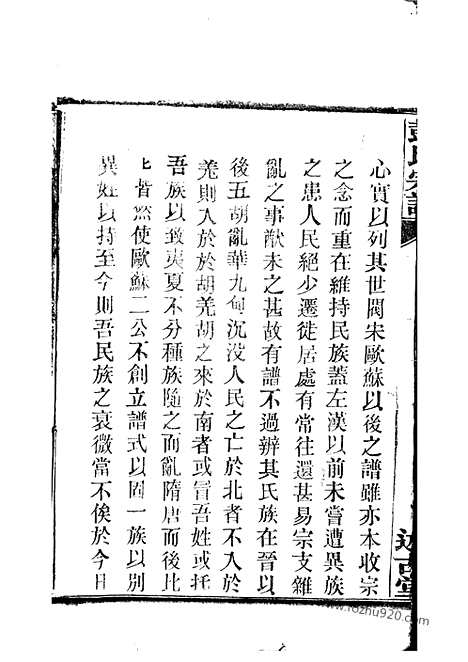 心實以列其世閥宋歐蘇以後之譜雖亦本收宗
之念而重在維持民族蓋左漢以前未嘗遭異族
之患人民絕少遷徙居處有常往還甚易宗支雜
亂之事猷未之甚故有譜不過辨其氏族在晉以
後五胡亂華九甸沉没人民之亡於北者不入於
羌則入於於胡羌胡之來於南者或冒吾姓或托
吾族以致夷夏不分種族隨之而亂隋唐而後比
比皆然使歐蘇二公不創立譜式以固一族以別
異姓以持至今則吾民族之衰微當不俟於今日
彭氏宗譜
述古堂
www.fozhu920.com